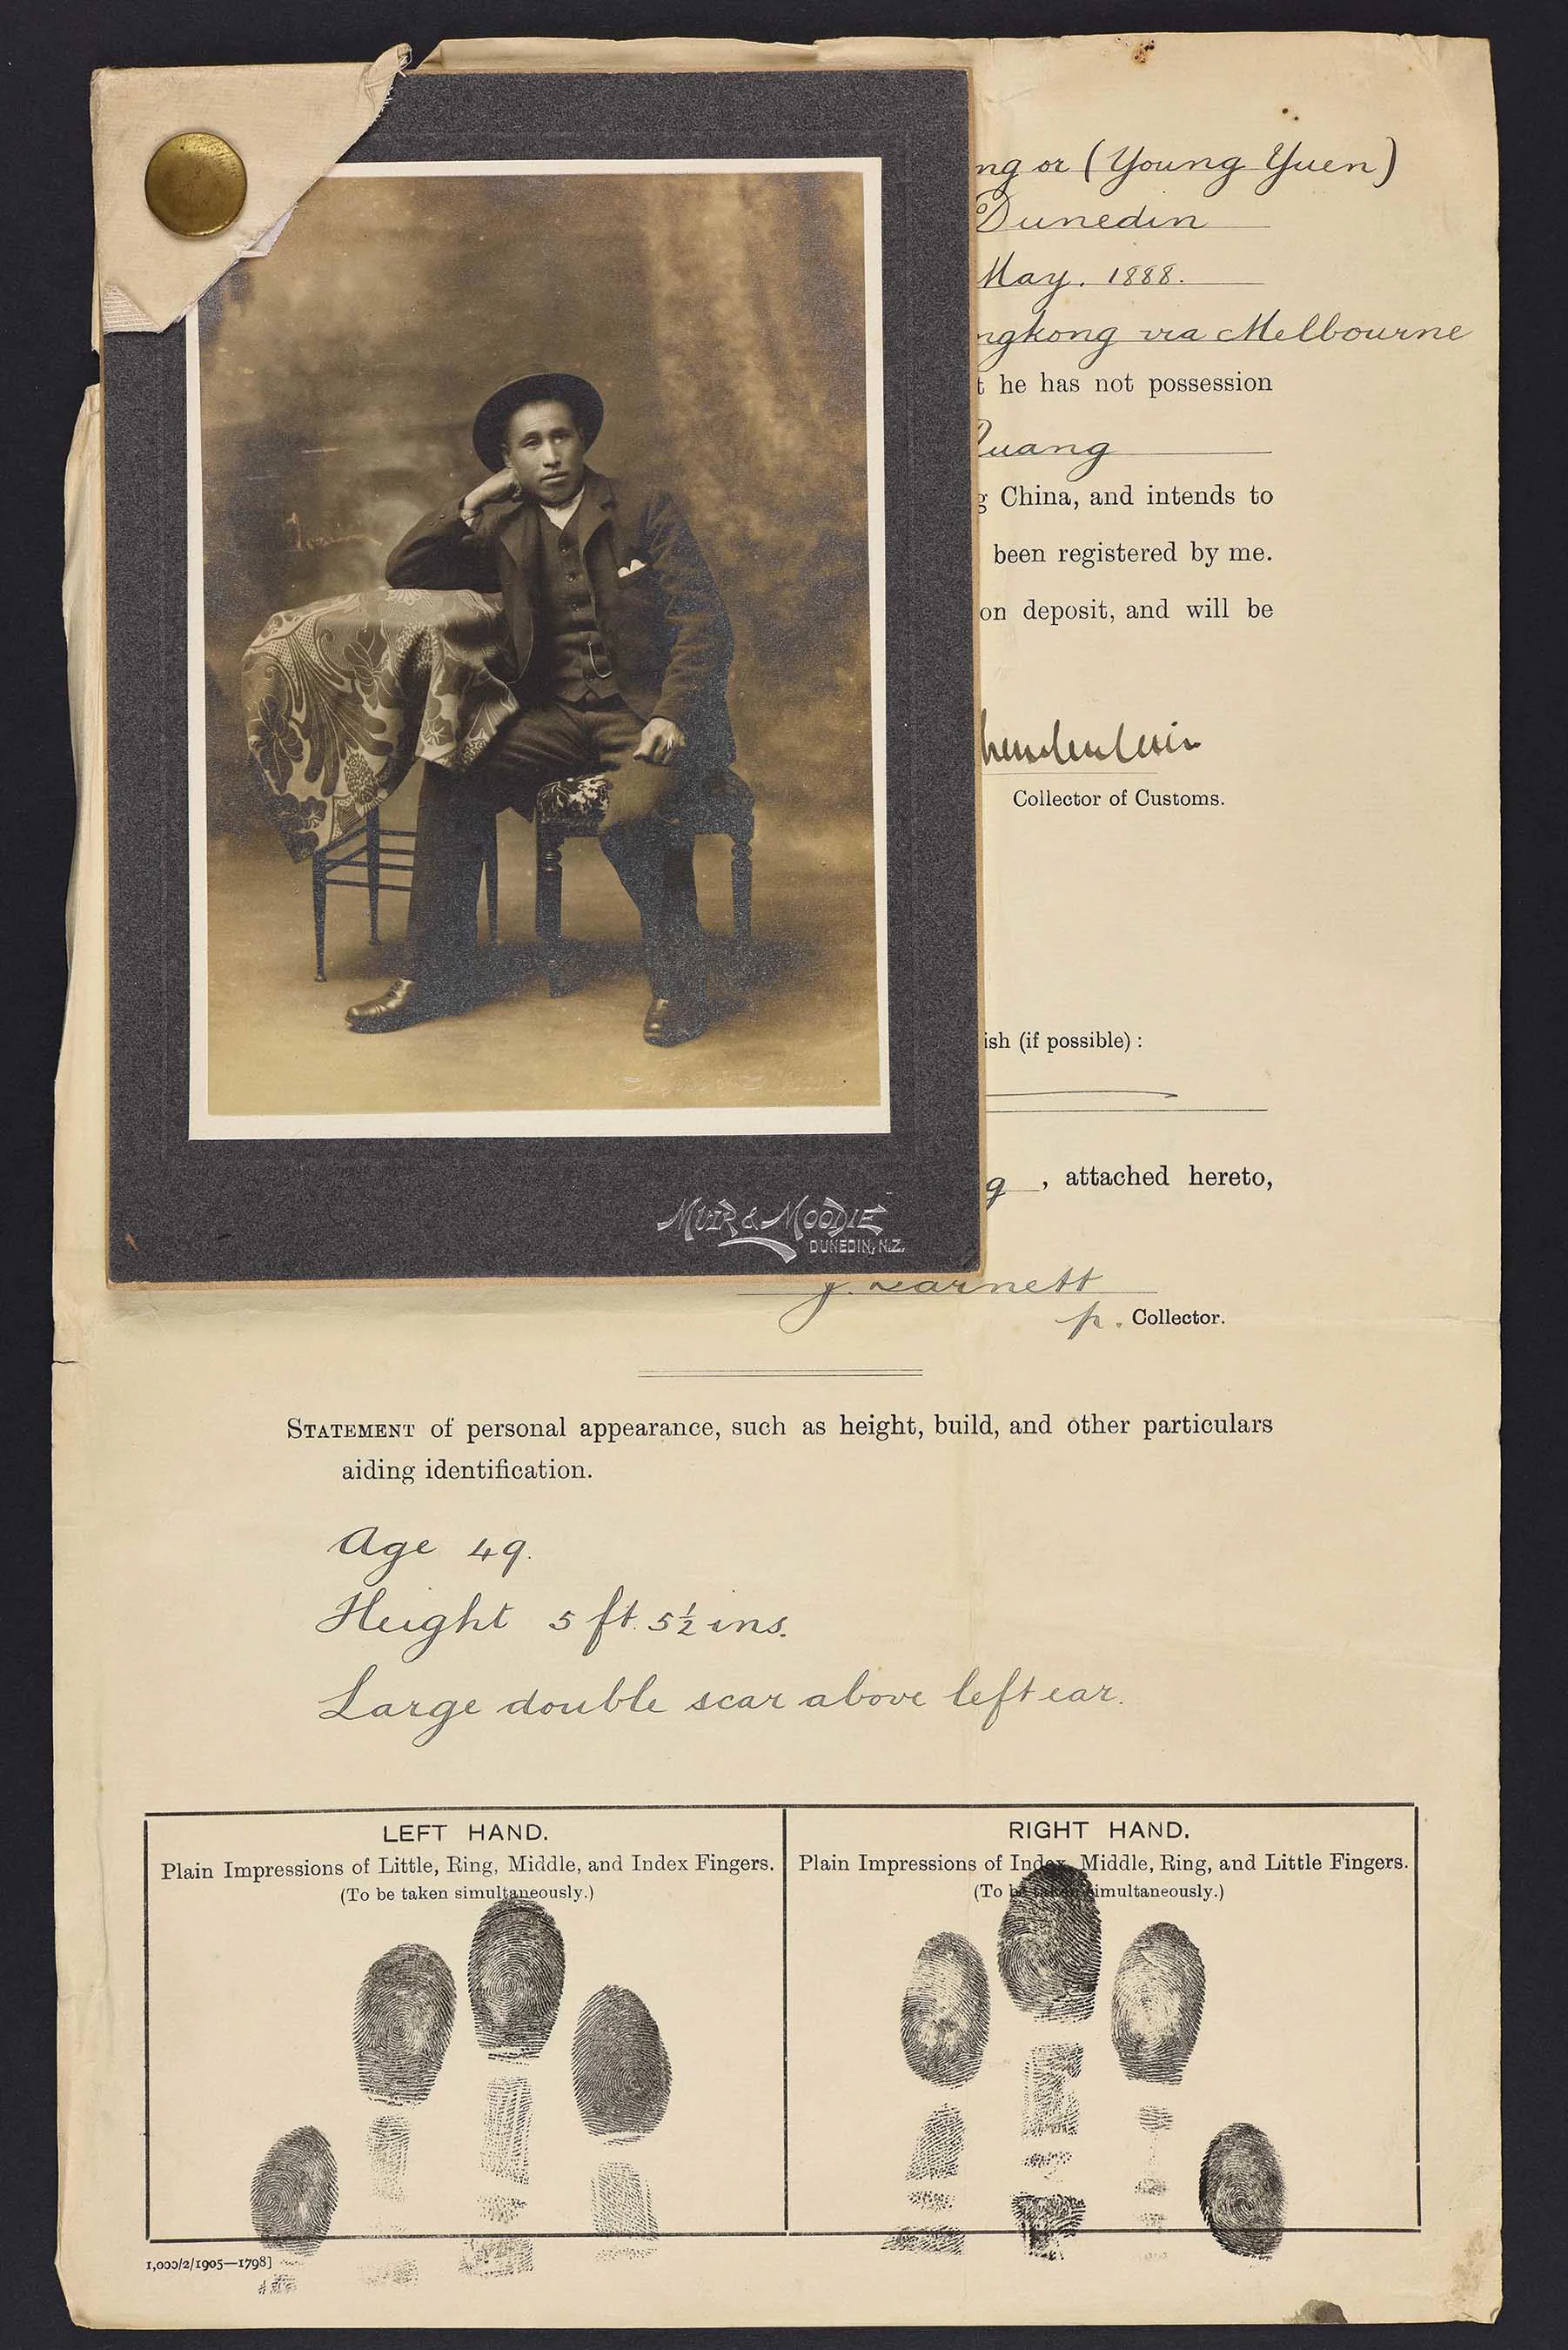 ng or (Young Yuen)
Dunedin
May. 1888.
ngkong via Melbourne
t he has not possession
uang
g China, and intends to
been registered by me.
on deposit, and will be
Collector of Customs.
ish (if possible) :
g , attached hereto,
MUIR & MOODIE
DUNEDIN, N.Z.
p. Collector.
STATEMENT of personal appearance, such as height, build, and other particulars
aiding identification.
Age 49.
Height 5 ft. 5½ ins.
Large double scar above left ear.
LEFT HAND.
Plain Impressions of Little, Ring, Middle, and Index Fingers.
(To be taken simultaneously.)
RIGHT HAND.
Plain Impressions of Index, Middle, Ring, and Little Fingers.
(To be taken simultaneously.)
1,000/2/1905—1798]